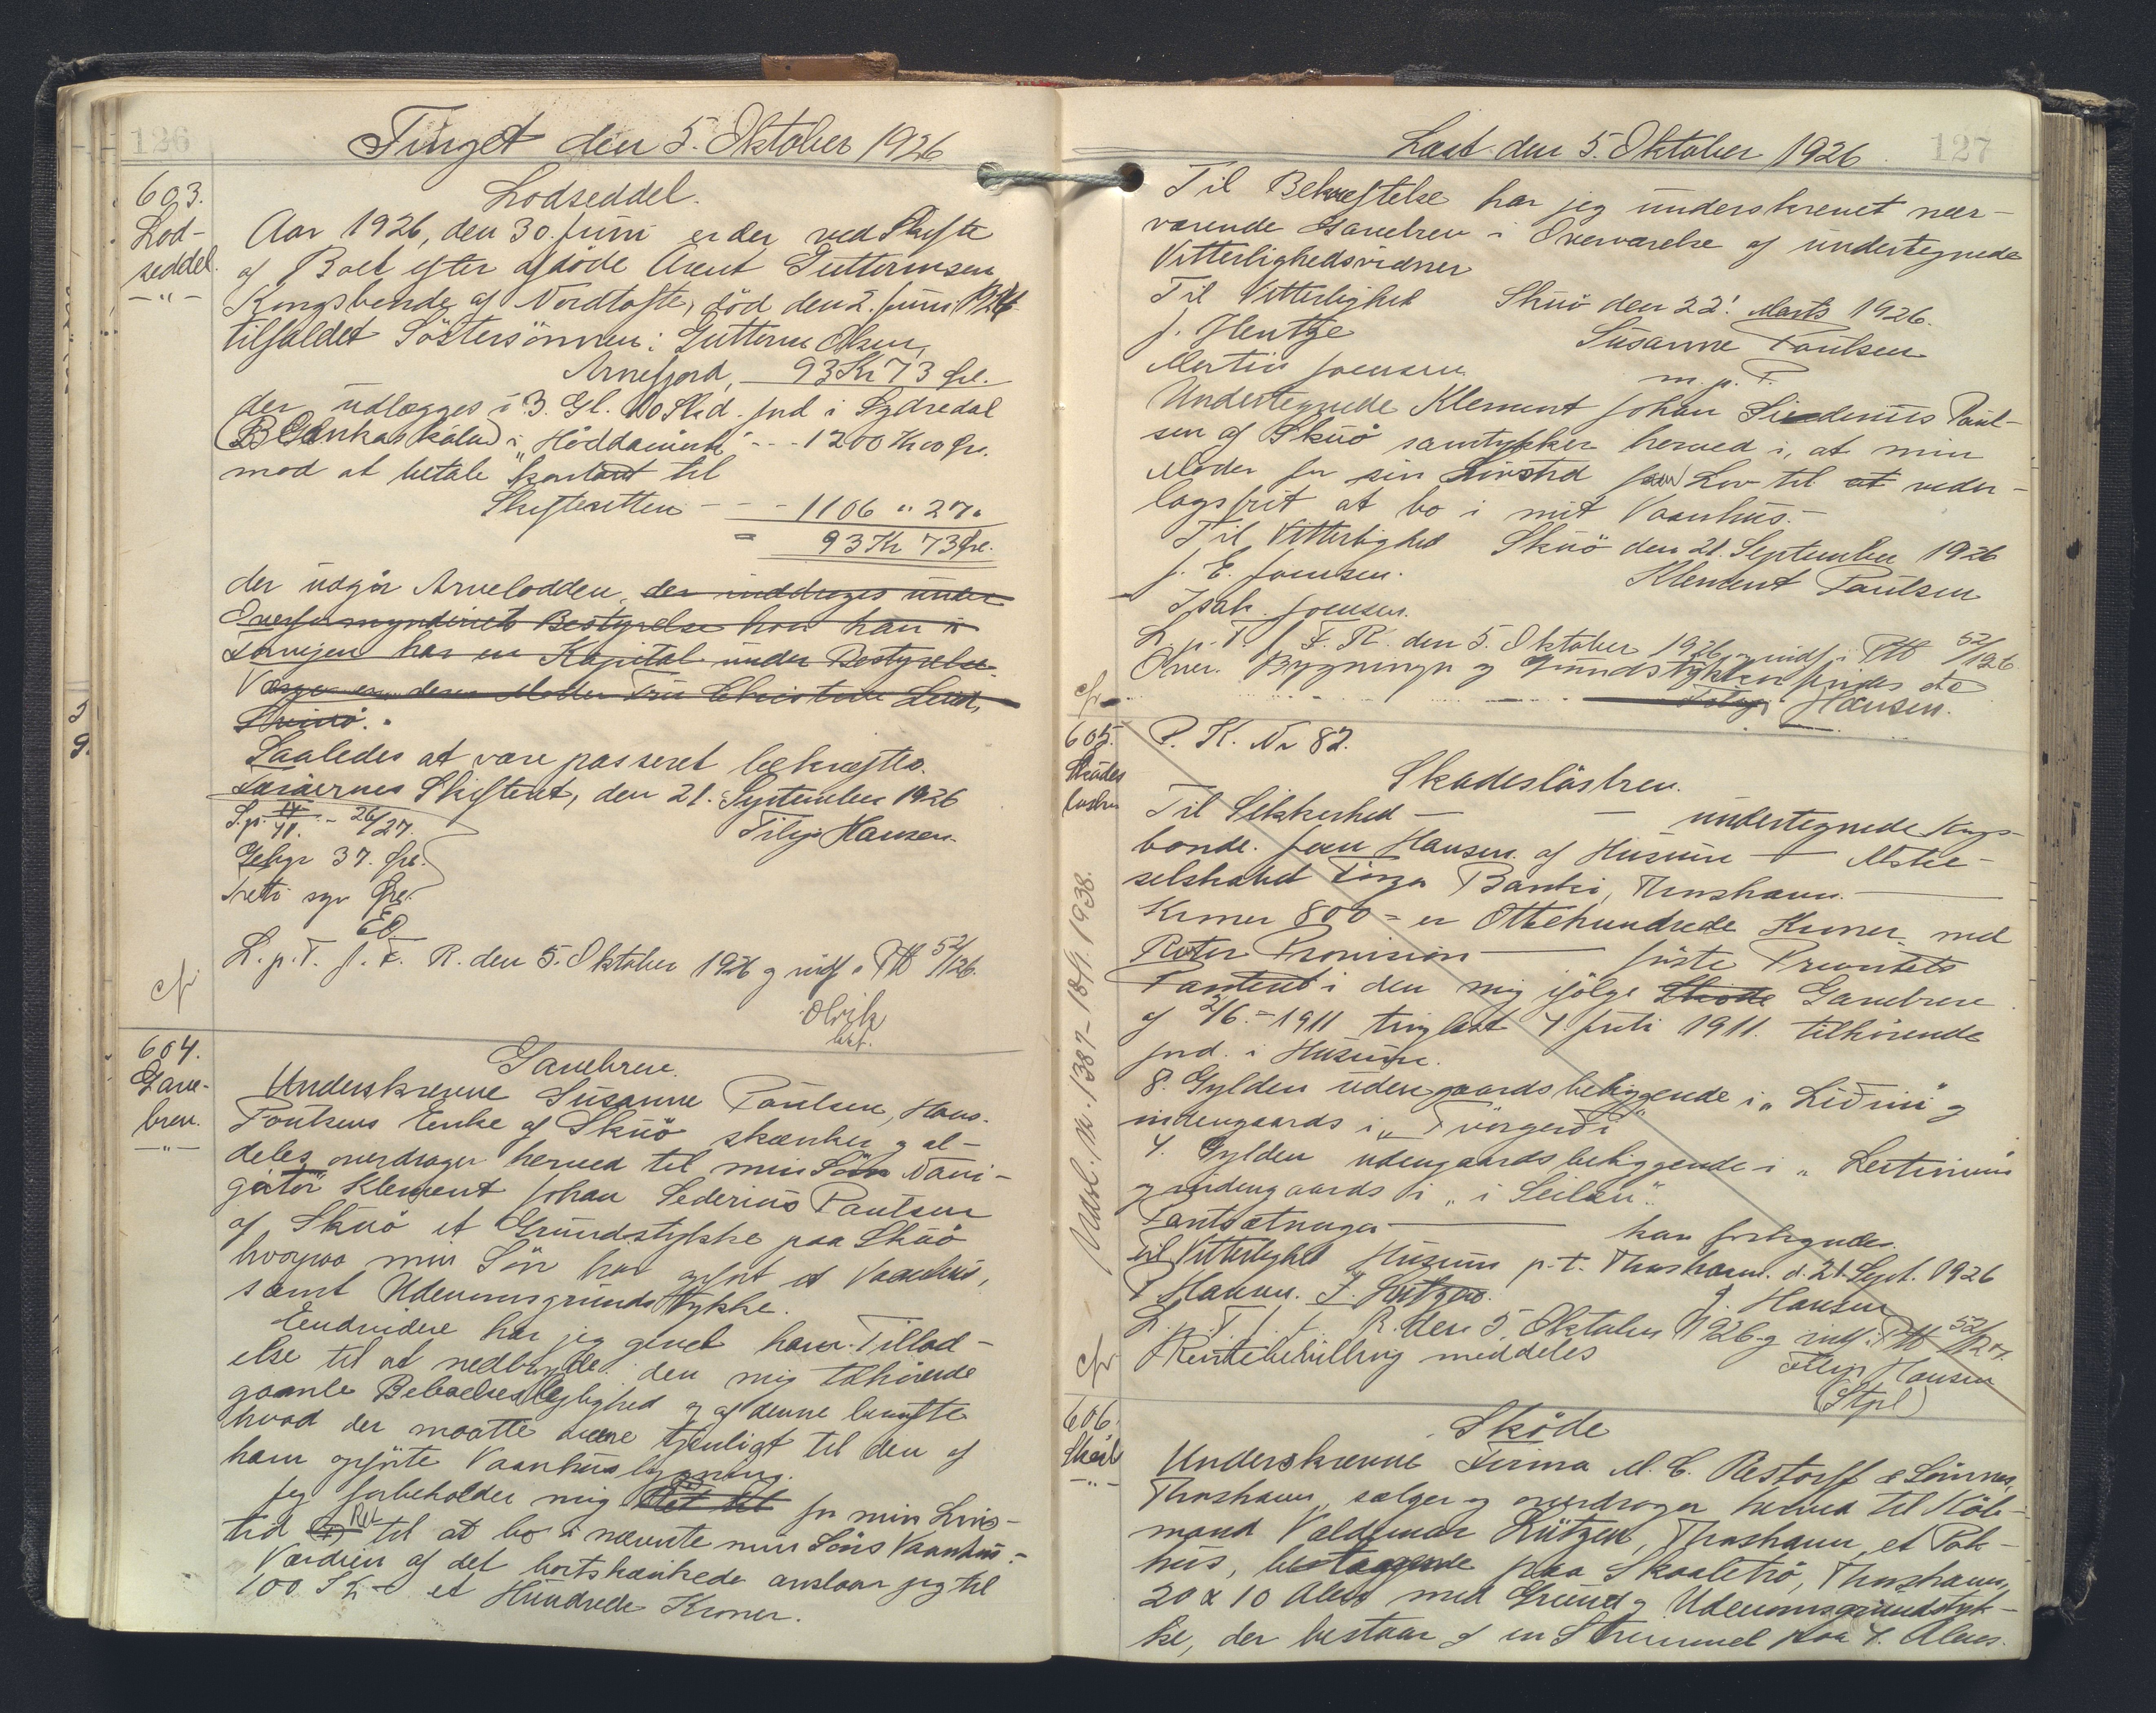 126
Tinget den 5. Oktober 1926
603.
Lod-
seddel.
Lodseddel.
Aar 1926, den 30. Juni er der ved Skifte
af Boet efter afdöde Arent Guttormsen
Kongsbonde af Nordtofte, död den 2. Juni 1926
tilfaldet Söstersönnen: Guttorm Olsen,
Arnefjord, 93 Kr 73 Øre.
der udlægges i 3. Gl. 10 Skd. Jord i Sydredal
1200 Kr 00 Øre.
mod at betale kontant til
Skifteretten - - - 1106 " 27 "
= 93 Kr 73 Øre.
der udgör Arvelodden, der inddrages under
Overformynderiets Bestyrelse hvor han i
har en Kapital under Bestyrelse.
Værge er deres Moder Fru Christine Lund,
Saaledes at være passeret bekræftes.
Færöernes Skifteret, den 21. September 1926
26/27.
Tilge Hansen.
Gebyr 37. Øre.
Tretti syv Øre.
EO.
L. p. T. f. F. R. den 5. Oktober 1926 og indf. i PB 52/126.
cfr
Olrik
kst.
604.
Gave-
brev.
Gavebrev.
Underskrevne Susanne Poulsen, Hans
Poulsens Enke af Skuö skænker og al-
deles overdrager herved til min Sön Navi-
gatör Klement Johan Sederius Poulsen
af Skuö et Grundstykke paa Skuö
hvorpaa min Sön har opfört et Vaanhus,
samt Udenomsgrundstykke.
Endvidere har jeg givet ham Tillad-
else til at nedbryde den mig tilhörende
gamle Beboelseslejlighed og af denne benytte
hvad der maatte være tjenligt til den af
ham opförte Vaanhusbygning.
Jeg forbeholder mig for min Livs-
tid Ret til at bo i nævnte min Söns Vaanhus.
Værdien af det bortskænkede anslaar jeg til
100 Kr et Hundrede Kroner.
Læst den 5. Oktober 1926
127
Til Bekræftelse har jeg underskrevet nær-
værende Gavebrev i Overværelse af undertegnede
Vitterlighedsvidner
Til Vitterlighed Skuö den 22' Marts 1926.
J. Hentze Susanne Poulsen
Martin Joensen m. p. P.
Undertegnede Klement Johan Siederius Poul-
sen af Skuö samtykker herved i, at min
Moder for sin Livstid faar Lov til at veder-
lagsfrit at bo i mit Vaanhus.
Til Vitterlighed Skuö den 21. September 1926
J. E. Joensen. Klement Poulsen
Isak Joensen.
L. p. T. f. F. R. den 5. Oktober 1926 og indf. i PB 52/126
Anm. Bygninger og Grundstykker findes ote
cfr Tilge Hansen.
605.
Skades
lösbrev
P. K. Nr 82.
Skadeslösbrev.
Til Sikkerhed — — undertegnede Kongs-
bonde. Joen Hansen af Husum — Aktie-
selskabet Föroya Banki, Thorshavn.
Kroner 800 = er Ottehundrede Kroner med
Renter Provision — förste Prioritets
Panteret i den mig ifölge Skøde Gavebrev
af 2/6.-1911 tinglæst 4 Juli 1911. tilhörende
Jord i Husum.
8. Gylden udengaards beliggende i „ Liðini og
indengaards i „
4. Gylden udengaards beliggende i „
og indengaards i „ i
Pantsætningen — han forlegnede
Til Vitterlighed Husum p. t. Thorshavn. d. 21. Sept. 1926
P. Hansen. J. Lützen. J. Hansen
L. p. T. f. F. R. den 5. Oktober 1926 og indf. i PB 52/127.
cfr Rentebevilling meddeles Tilge Hansen
(Stpl)
Udsl. nr. 1387 - 18/1. 1938.
606.
Sköde
Sköde
Underskrevne Firma M. C. Restorff & Sönner,
Thorshavn, sælger og overdrager herved til Köb-
mand Valdemar Lützen, Thorshavn, et Pak-
hus, beliggende paa Skaaletrö, Thorshavn,
20 x 10 Alen med Grund og Udenomsgrundstyk-
ke, der bestaar af en Strimmel paa 4. Alens